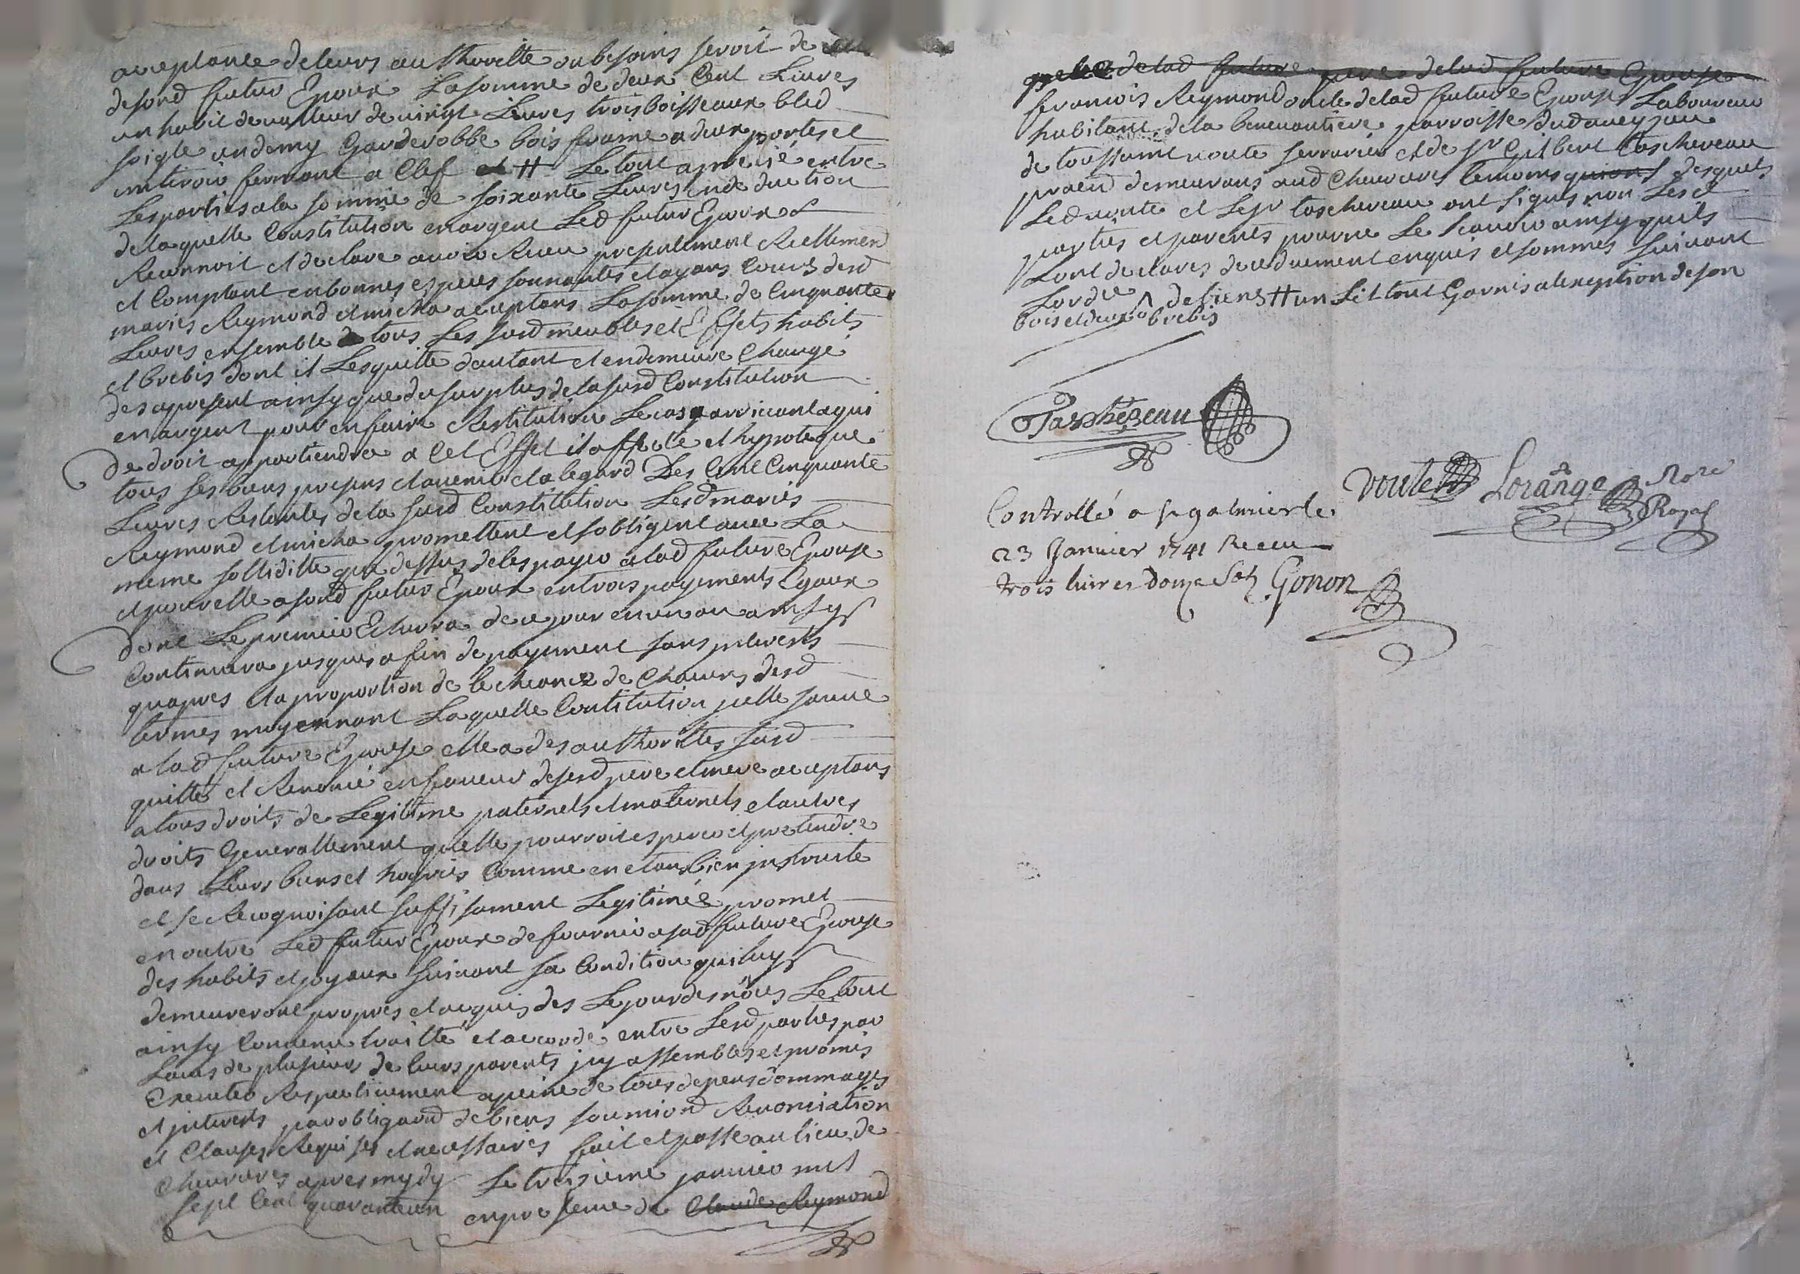 acceptante de leurs authorille ou besoins seroit de
desond futur Epoux La somme de deux Cent Livres
un habit de valleur de vingt Livres trois boisseaux bled
soigle un demy Garderobbe bois frame a deux portes et
un tiroir fermant a Clef et H Le tout aprecié entre
Les parties a la somme de soixante Livres en deduction
de laquelle Constitution en argent Led futur Epoux
Reconnoit et declare avoir Receu presentement Reellement
et Comptant en bonnes especes sonnantes et ayans Cours desd
mariés Reymond et micha aceptans La somme de Cinquante
Livres ensemble tous Les susd meubles et Effets habits
et brebis dont il Les quitte d'autant et en demeure Chargé
des apresent ainsy que du surplus de la susd Constitution
en argent pour en faire Restitution Le cas arrivant a qui
de droit appartiendra a Cet Effet il affecte et hypoteque
tous ses biens presens et avenir et a legard Des Cent Cinquante
Livres Restantes de la susd Constitution Lesd mariés
Reymond et micha promettent et sobligent avec La
meme solliditte que dessus de les payer a lad future Epouse
et pour elle a sond futur Epoux en trois payements Egaux
dont Le premier Echerra de ce jour en un an ainsy
Continuera jusques a fin de payement sans interests
quapres et a proportion de lecheance de Chacuns desd
termes moyennant Laquelle Contitution jcelle
a lad future Epouse elle a des authorittes susd
quitte et Renoncé en faveur de sesd pere et mere aceptans
a tous droits de Legitime paternels et maternels et autres
droits Generallement quelle pourroit esperer et pretendre
dans Leurs biens et hoyries Comme en etans bien jnstruite
et se Recognoisant suffisament Legitimée promet
en outre Led futur Epoux de fournir a sad future Epouse
des habits et joyaux suivant sa Condition qui luy
demeureront propres et acquis des Le jour des nôces Le tout
ainsy Convenu traitté et accordé entre Lesd parties par
Lavis de plusieurs de leurs parents jcy assemblés et promis
Executer Respectivement a peine de tous depens dommages
et jnterests par obligaon de biens soumiond Renonciation
et Clauses Requises et necessaires fait et passé au lieu de
Cheuvieres apres mydy Le treisieme janvier mil
sept Cent quarante un en presence de Claude Reymond
de lad future pere de lad future Epouse
francois Reymond oncle de lad future Epouse Laboureur
habitant de la benevantiere parroisse
de toussaint voute serrurier et de sr Gilbert taschereau
praen demeurans aud Cheuvieres temoins quions desquels
Led voute et Le sr taschereau ont signes non Les
parties et parents pour ne Le scavoir ainsy quils
Lont declares deuduement enquis et sommes suivant
Lordce ^ de siens H un Lit tout Garnis a lexeption de son
bois et deux brebis
Taschereau
voute Lorange Nore
Royal
Controllé a st galmier le
23 Janvier 1741 Receu
trois livres douze sols Gonon